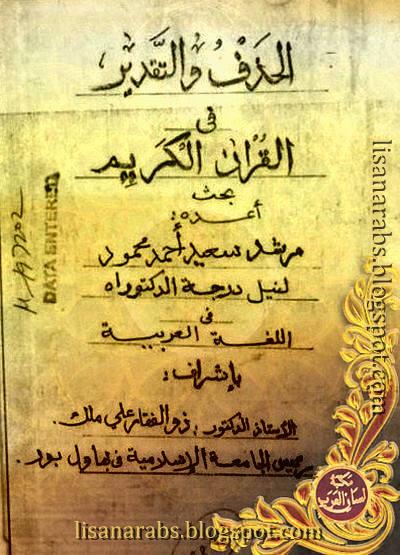 الحذف والتقدير
فى
القرآن الكريم
بحث
أعده:
مرشد سعيد أحمد محمود
لنيل درجة الدكتوراه
فى
اللغة العربية
بإشراف:
الأستاذ الدكتور: ذوالفقار علي ملك.
الجامعة الإسلامية فى بهاول بور.
DATA ENTERED
lisanarabs.blogspot.com
مكتبة
لسان العرب
lisanarabs.blogspot.com